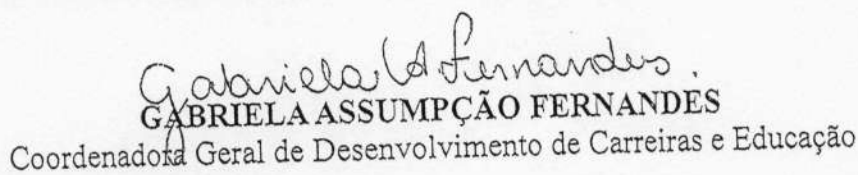 Gabriela A Fernandes.
GABRIELA ASSUMPÇÃO FERNANDES
Coordenadora Geral de Desenvolvimento de Carreiras e Educação